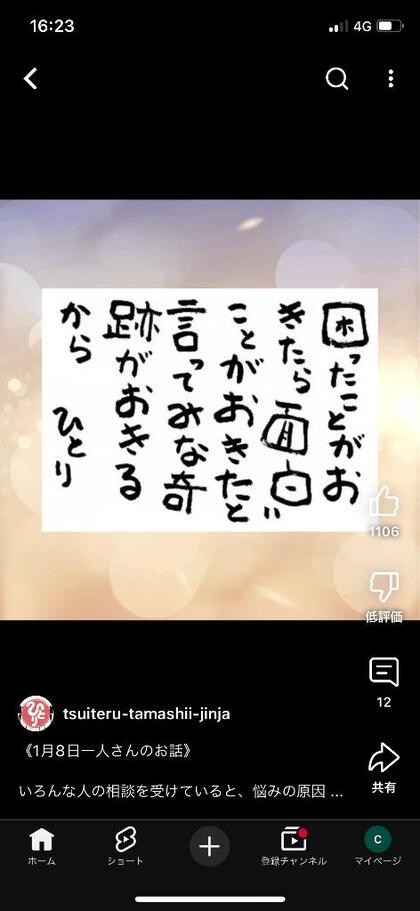 16:23
4G
困ったことがお
きたら面白い
ことがおきたと
言ってみな奇
跡がおきる
から ひとり
1106
低評価
12
共有
tsuiteru-tamashii-jinja
《1月8日一人さんのお話》
いろんな人の相談を受けていると、悩みの原因 ...
ホーム
ショート
登録チャンネル
C
マイページ